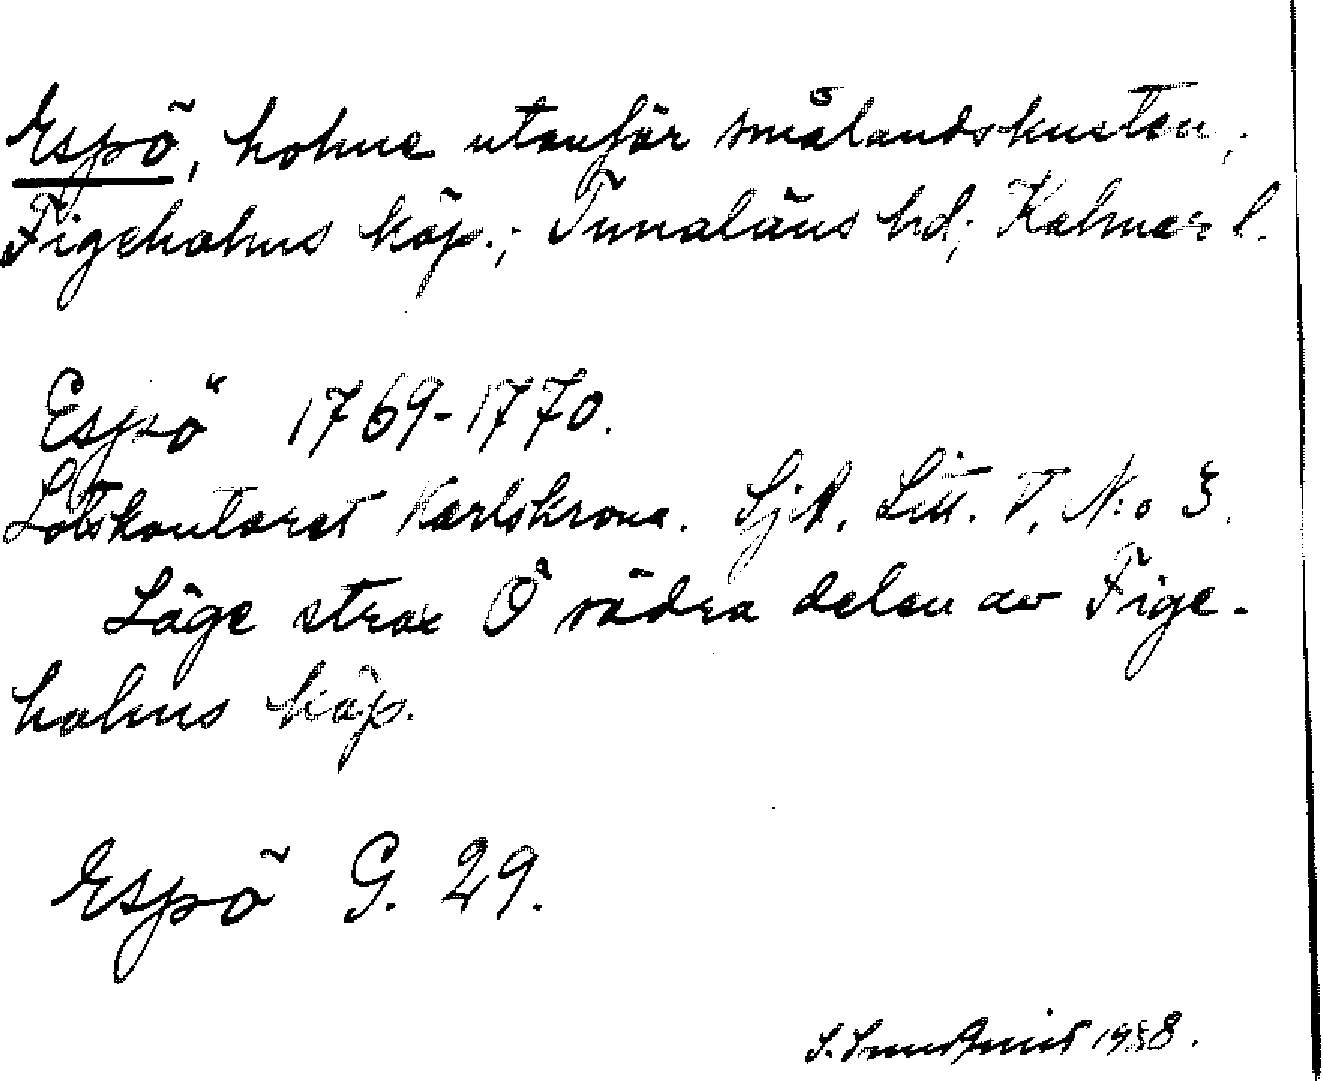 Espö, holme utanför Smålandskusten,
Figeholms köp.; Tunaläns hd; Kalmar l.
Espö 1769-1770.
Lotskontoret Karlskrona. SjA. Litt. T, N:o 3.
Läge strax Ö södra delen av Fige-
holms köp.
Espö G. 29.
S. 1958.